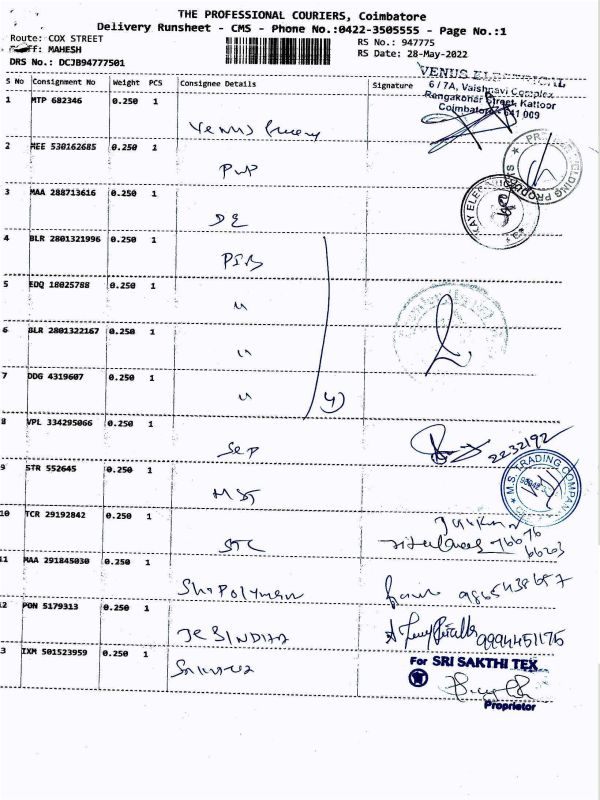 THE PROFESSIONAL COURIERS, Coimbatore
Delivery Runsheet - CMS - Phone No.:0422-3505555 - Page No.:1
Route: COX STREET
RS No.: 947775
MAHESH
RS Date: 28-May-2022
DRS No.: DCJB94777501
S No Consignment No Weight PCS Consignee Details Signature
VENUS ELECTRICAL
6 / 7A, Vaishnavi Complex
Rangakonar Street, Kattoor
Coimbatore - 641 009
1 MTP 682346 0.250 1
Venus
2 MEE 530162685 0.250 1
PWP
3 MAA 288713616 0.250 1
KAY ELE
DE
4 BLR 2801321996 0.250 1
PSB
5 EDQ 18025788 0.250 1
"
6 BLR 2801322167 0.250 1
"
7 DDG 4319607 0.250 1
" 4)
8 VPL 334295066 0.250 1
Sep 2232192
9 STR 552645 0.250 1
MST
M.S. TRADING COMPANY
10 TCR 29192842 0.250 1
STC
76676
66203
11 MAA 291845030 0.250 1
Sho Polymer 9865438657
12 PON 5179313 0.250 1
JCB INDIA 9994451175
3 IXM 501523959 0.250 1
For SRI SAKTHI TEX
Proprietor